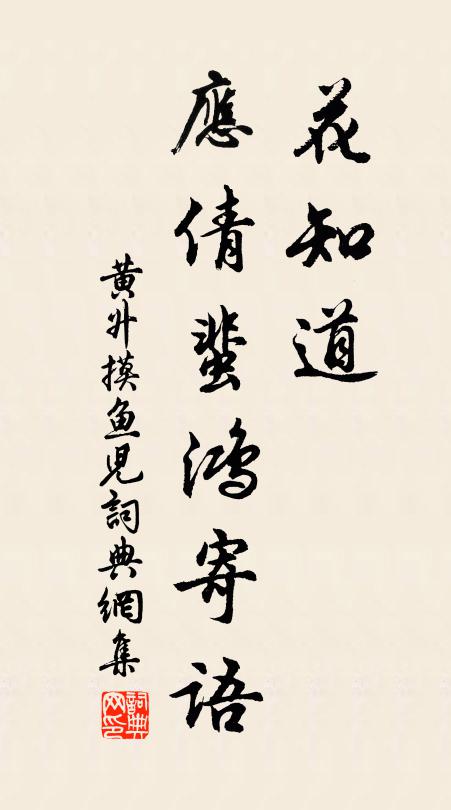 花知道
應倩蜚鴻寄語
黄升摸魚兒詞典網集
詞典网印